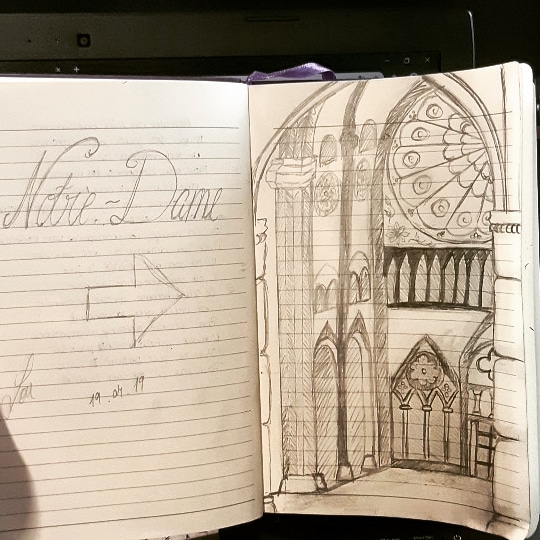 Notre-Dame
19.04.19